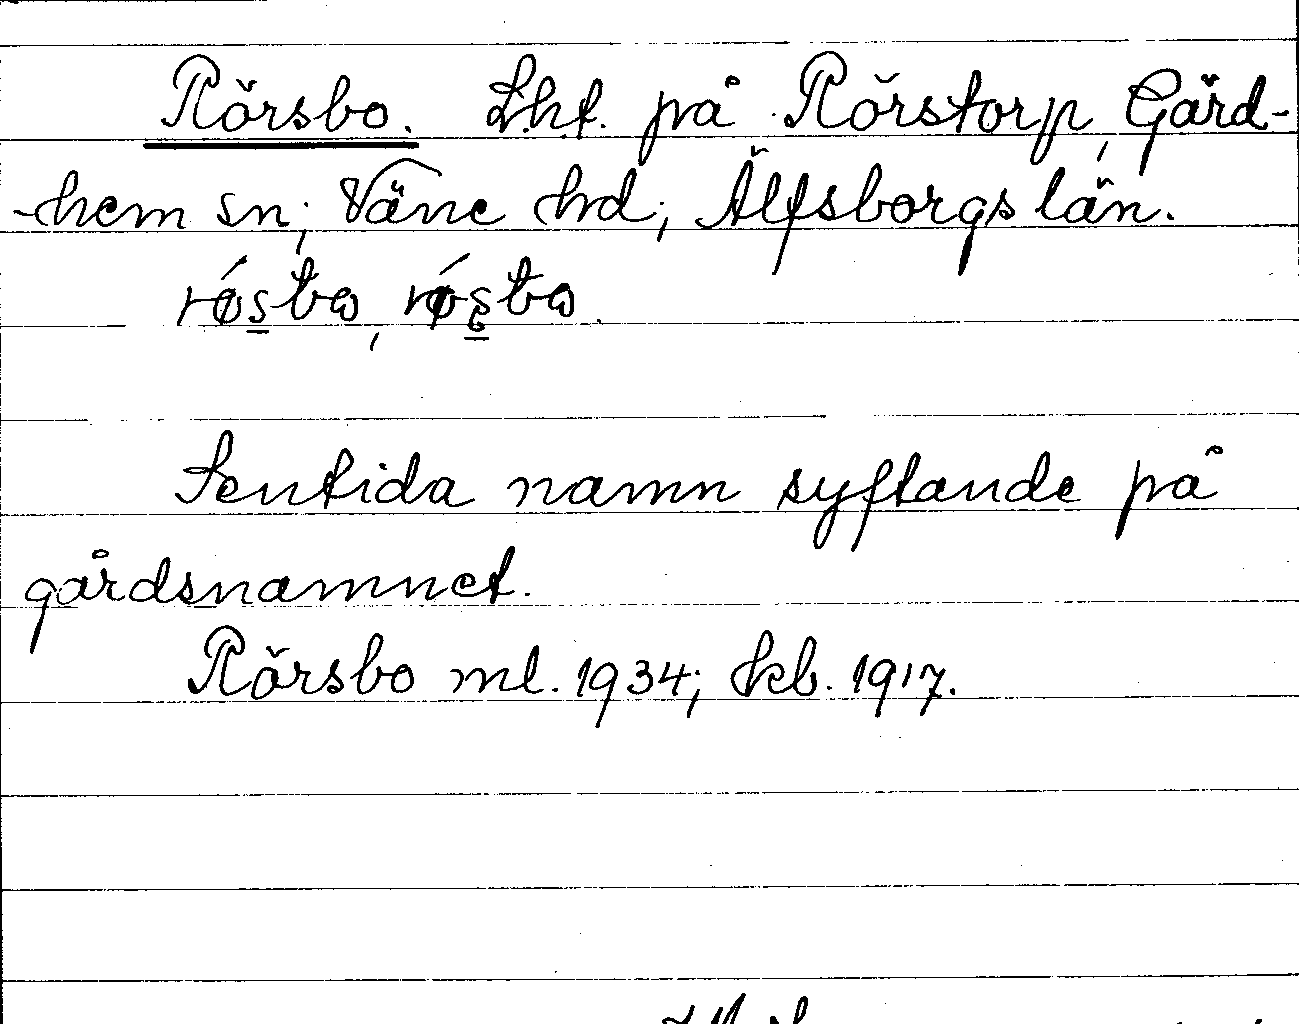 Rörsbo. Lht. på Rörstorp, Gärd-
-hem sn; Väne hd; Älfsborgs län.
Sentida namn syftande på
gårdsnamnet.
Rörsbo ml. 1934; kb. 1917.